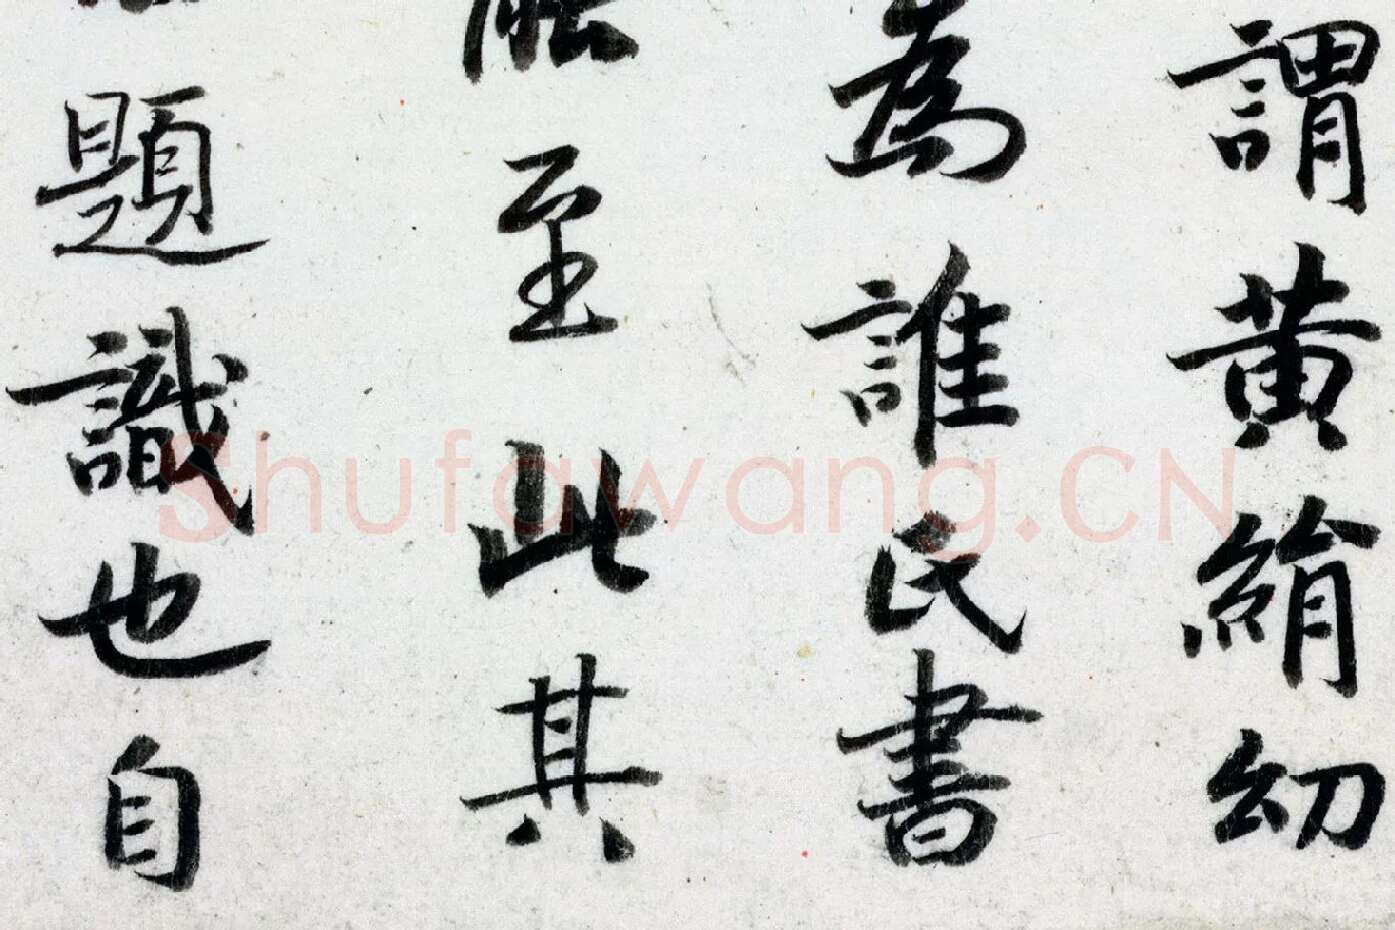 謂黄絹幼
為誰氏書
能至此其
題識也自
Shufawang.CN